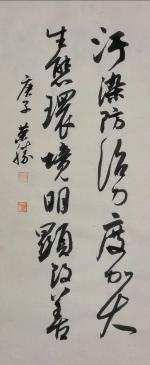 污染防治力度加大
生態環境明顯改善
庚子 英勝